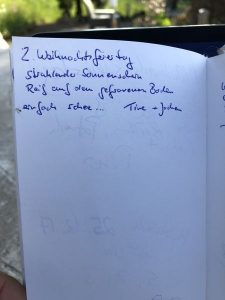 2 Weihnachtsfeiertag
strahlender Sonnenschein
Reif auf dem gefrorenen Boden
einfach schee... Tine + Jochen